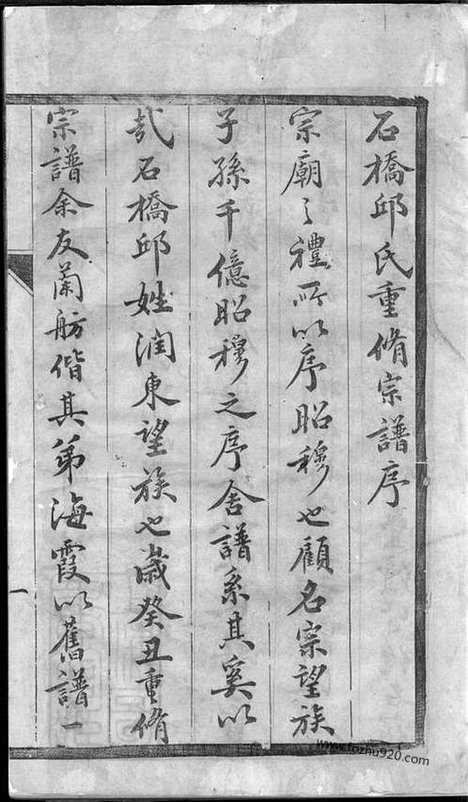 石橋邱氏重脩宗譜序
宗廟之禮所以序昭穆也顧名宗望族
子孫千億昭穆之序舍譜系其奚以
哉石橋邱姓潤東望族也歲癸丑重脩
宗譜余友蘭舫偕其弟海霞以舊譜一
一
www.fozhu920.com